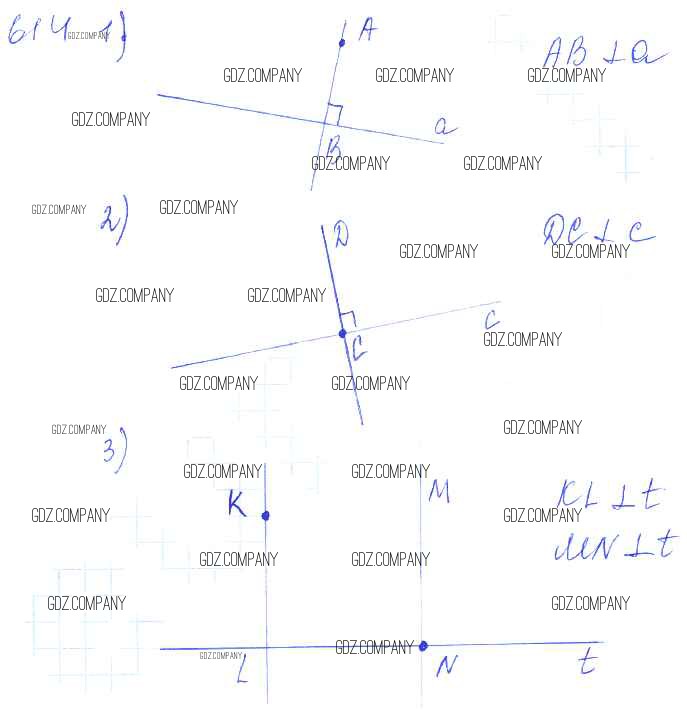 614 1)
A
AB ⊥ a
GDZ.COMPANY
GDZ.COMPANY GDZ.COMPANY GDZ.COMPANY
GDZ.COMPANY
a
B
GDZ.COMPANY GDZ.COMPANY
GDZ.COMPANY 2) GDZ.COMPANY
D
DC ⊥ c
GDZ.COMPANY GDZ.COMPANY
GDZ.COMPANY GDZ.COMPANY
c
C
GDZ.COMPANY
GDZ.COMPANY GDZ.COMPANY
GDZ.COMPANY GDZ.COMPANY
3)
GDZ.COMPANY GDZ.COMPANY
K
M
KL ⊥ t
GDZ.COMPANY GDZ.COMPANY
MN ⊥ t
GDZ.COMPANY GDZ.COMPANY
GDZ.COMPANY GDZ.COMPANY
GDZ.COMPANY GDZ.COMPANY
L N t